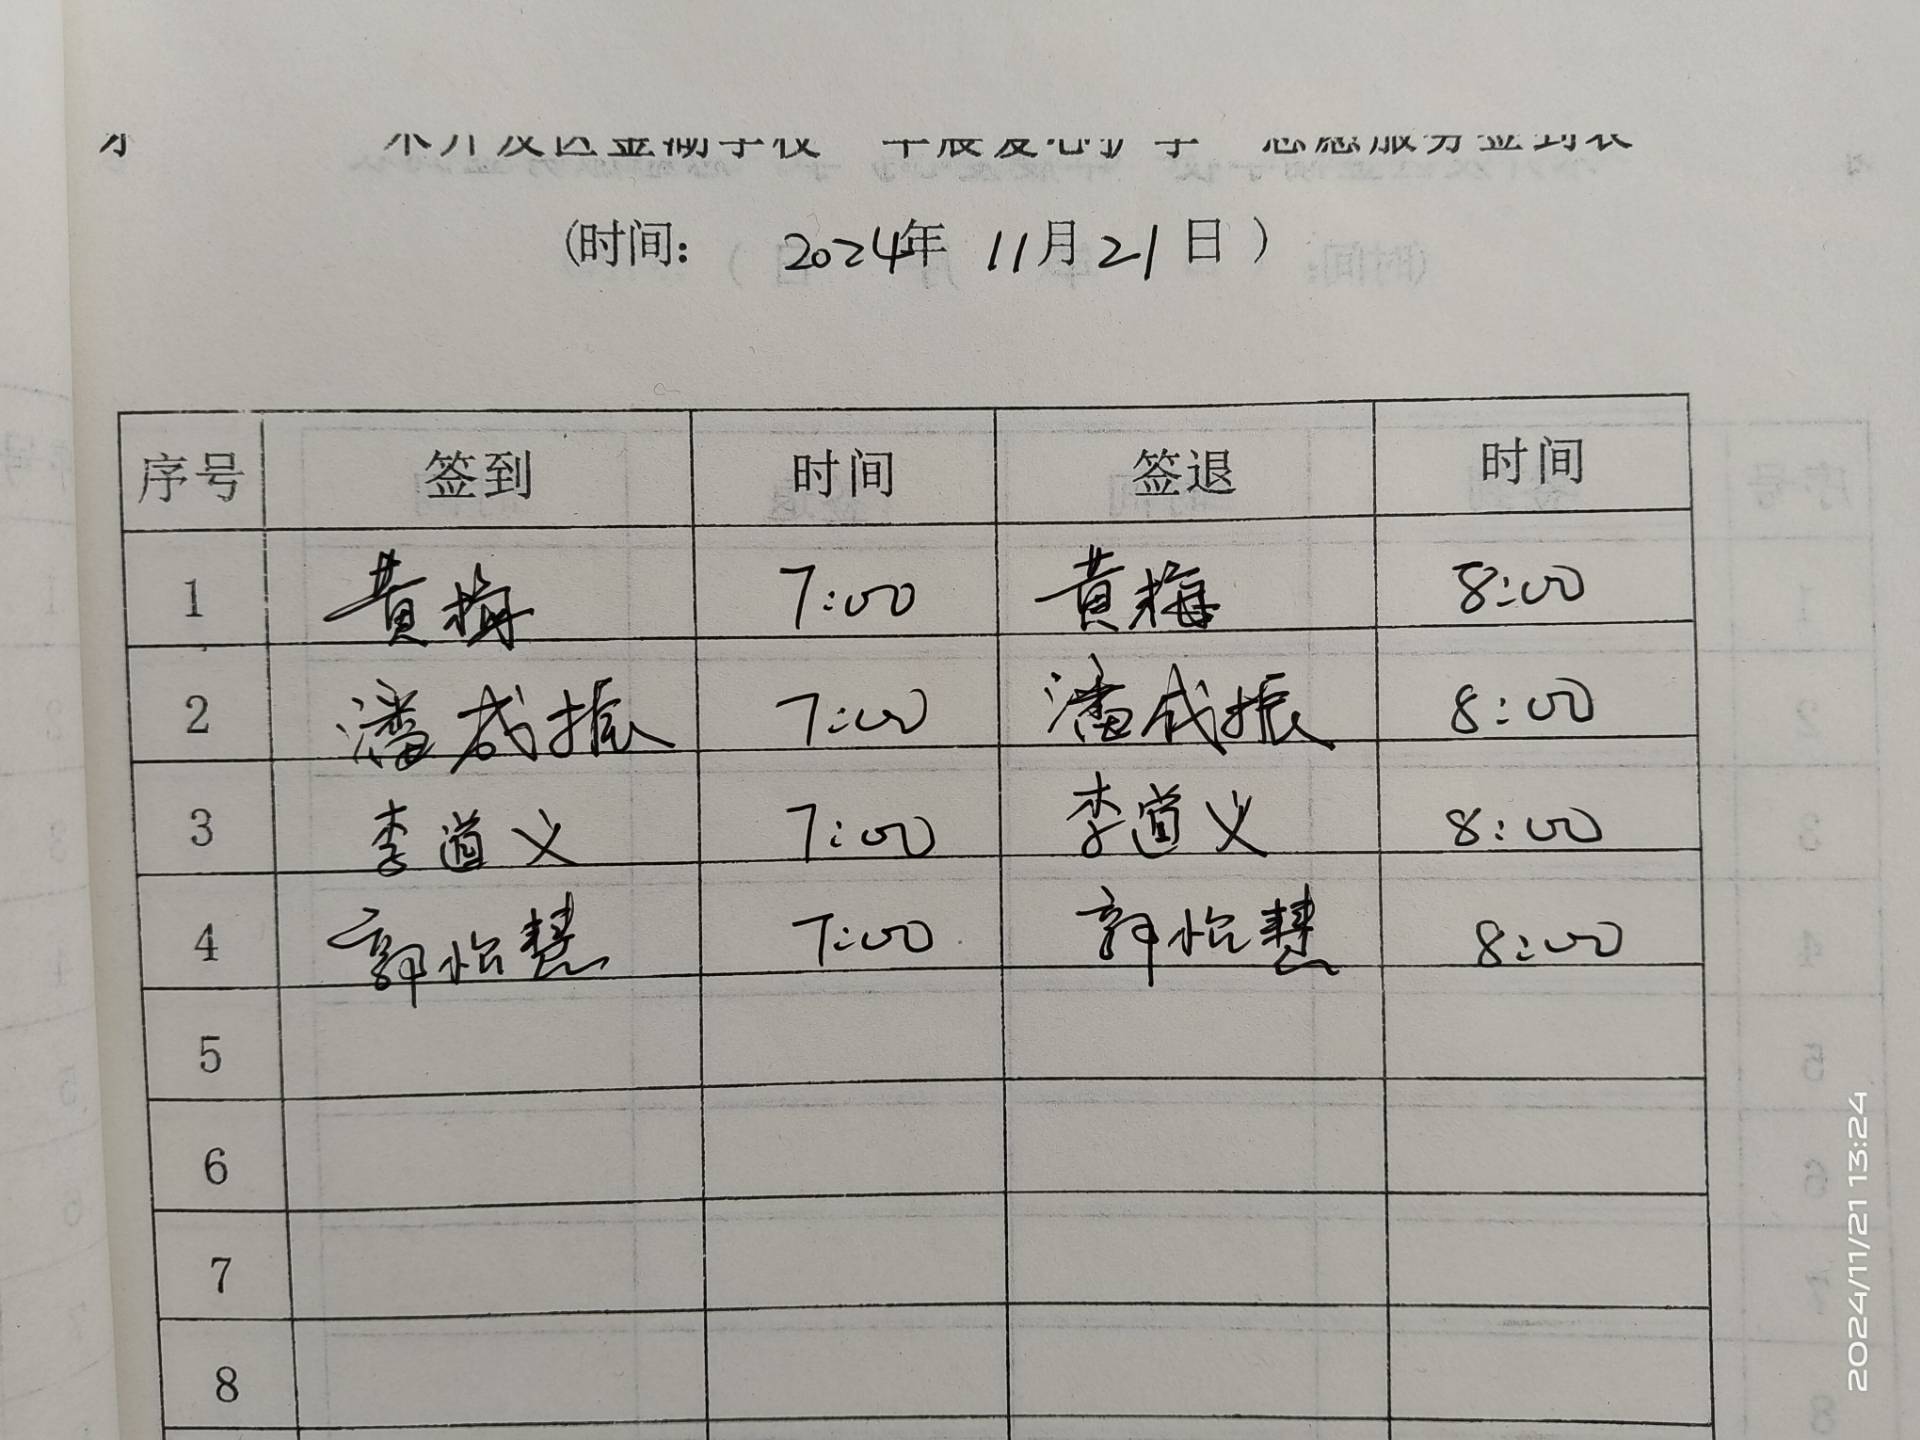 术开发区金湖学校 早晨爱心护学 志愿服务签到表
(时间: 2024年 11月21日)
序号 签到 时间 签退 时间
1 黄梅 7:00 黄梅 8:00
2 潘成振 7:00 潘成振 8:00
3 李道义 7:00 李道义 8:00
4 郭怡慧 7:00 郭怡慧 8:00
5
6
7
8
2024/11/21 13:24